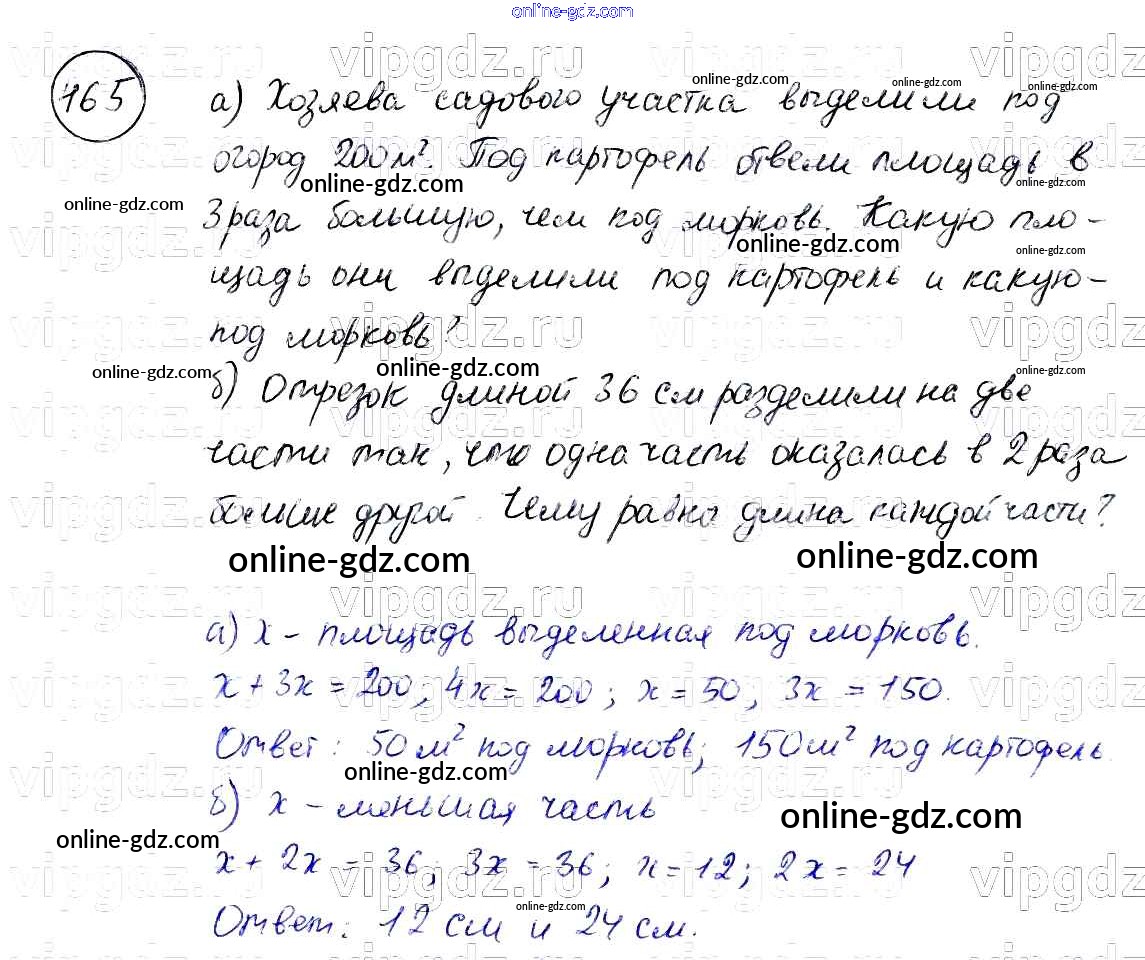 online-gdz.com
165
а) Хозяева садового участка выделили под
огород 200 м². Под картофель отвели площадь в
3 раза большую, чем под морковь. Какую пло-
щадь они выделили под картофель и какую-
под морковь?
б) Отрезок длиной 36 см разделили на две
части так, что одна часть оказалась в 2 раза
больше другой. Чему равна длина каждой части?
online-gdz.com online-gdz.com
а) x - площадь выделенная под морковь.
x + 3x = 200; 4x = 200; x = 50; 3x = 150.
Ответ: 50 м² под морковь; 150 м² под картофель.
б) x - меньшая часть
x + 2x = 36; 3x = 36; x = 12; 2x = 24
Ответ: 12 см и 24 см.